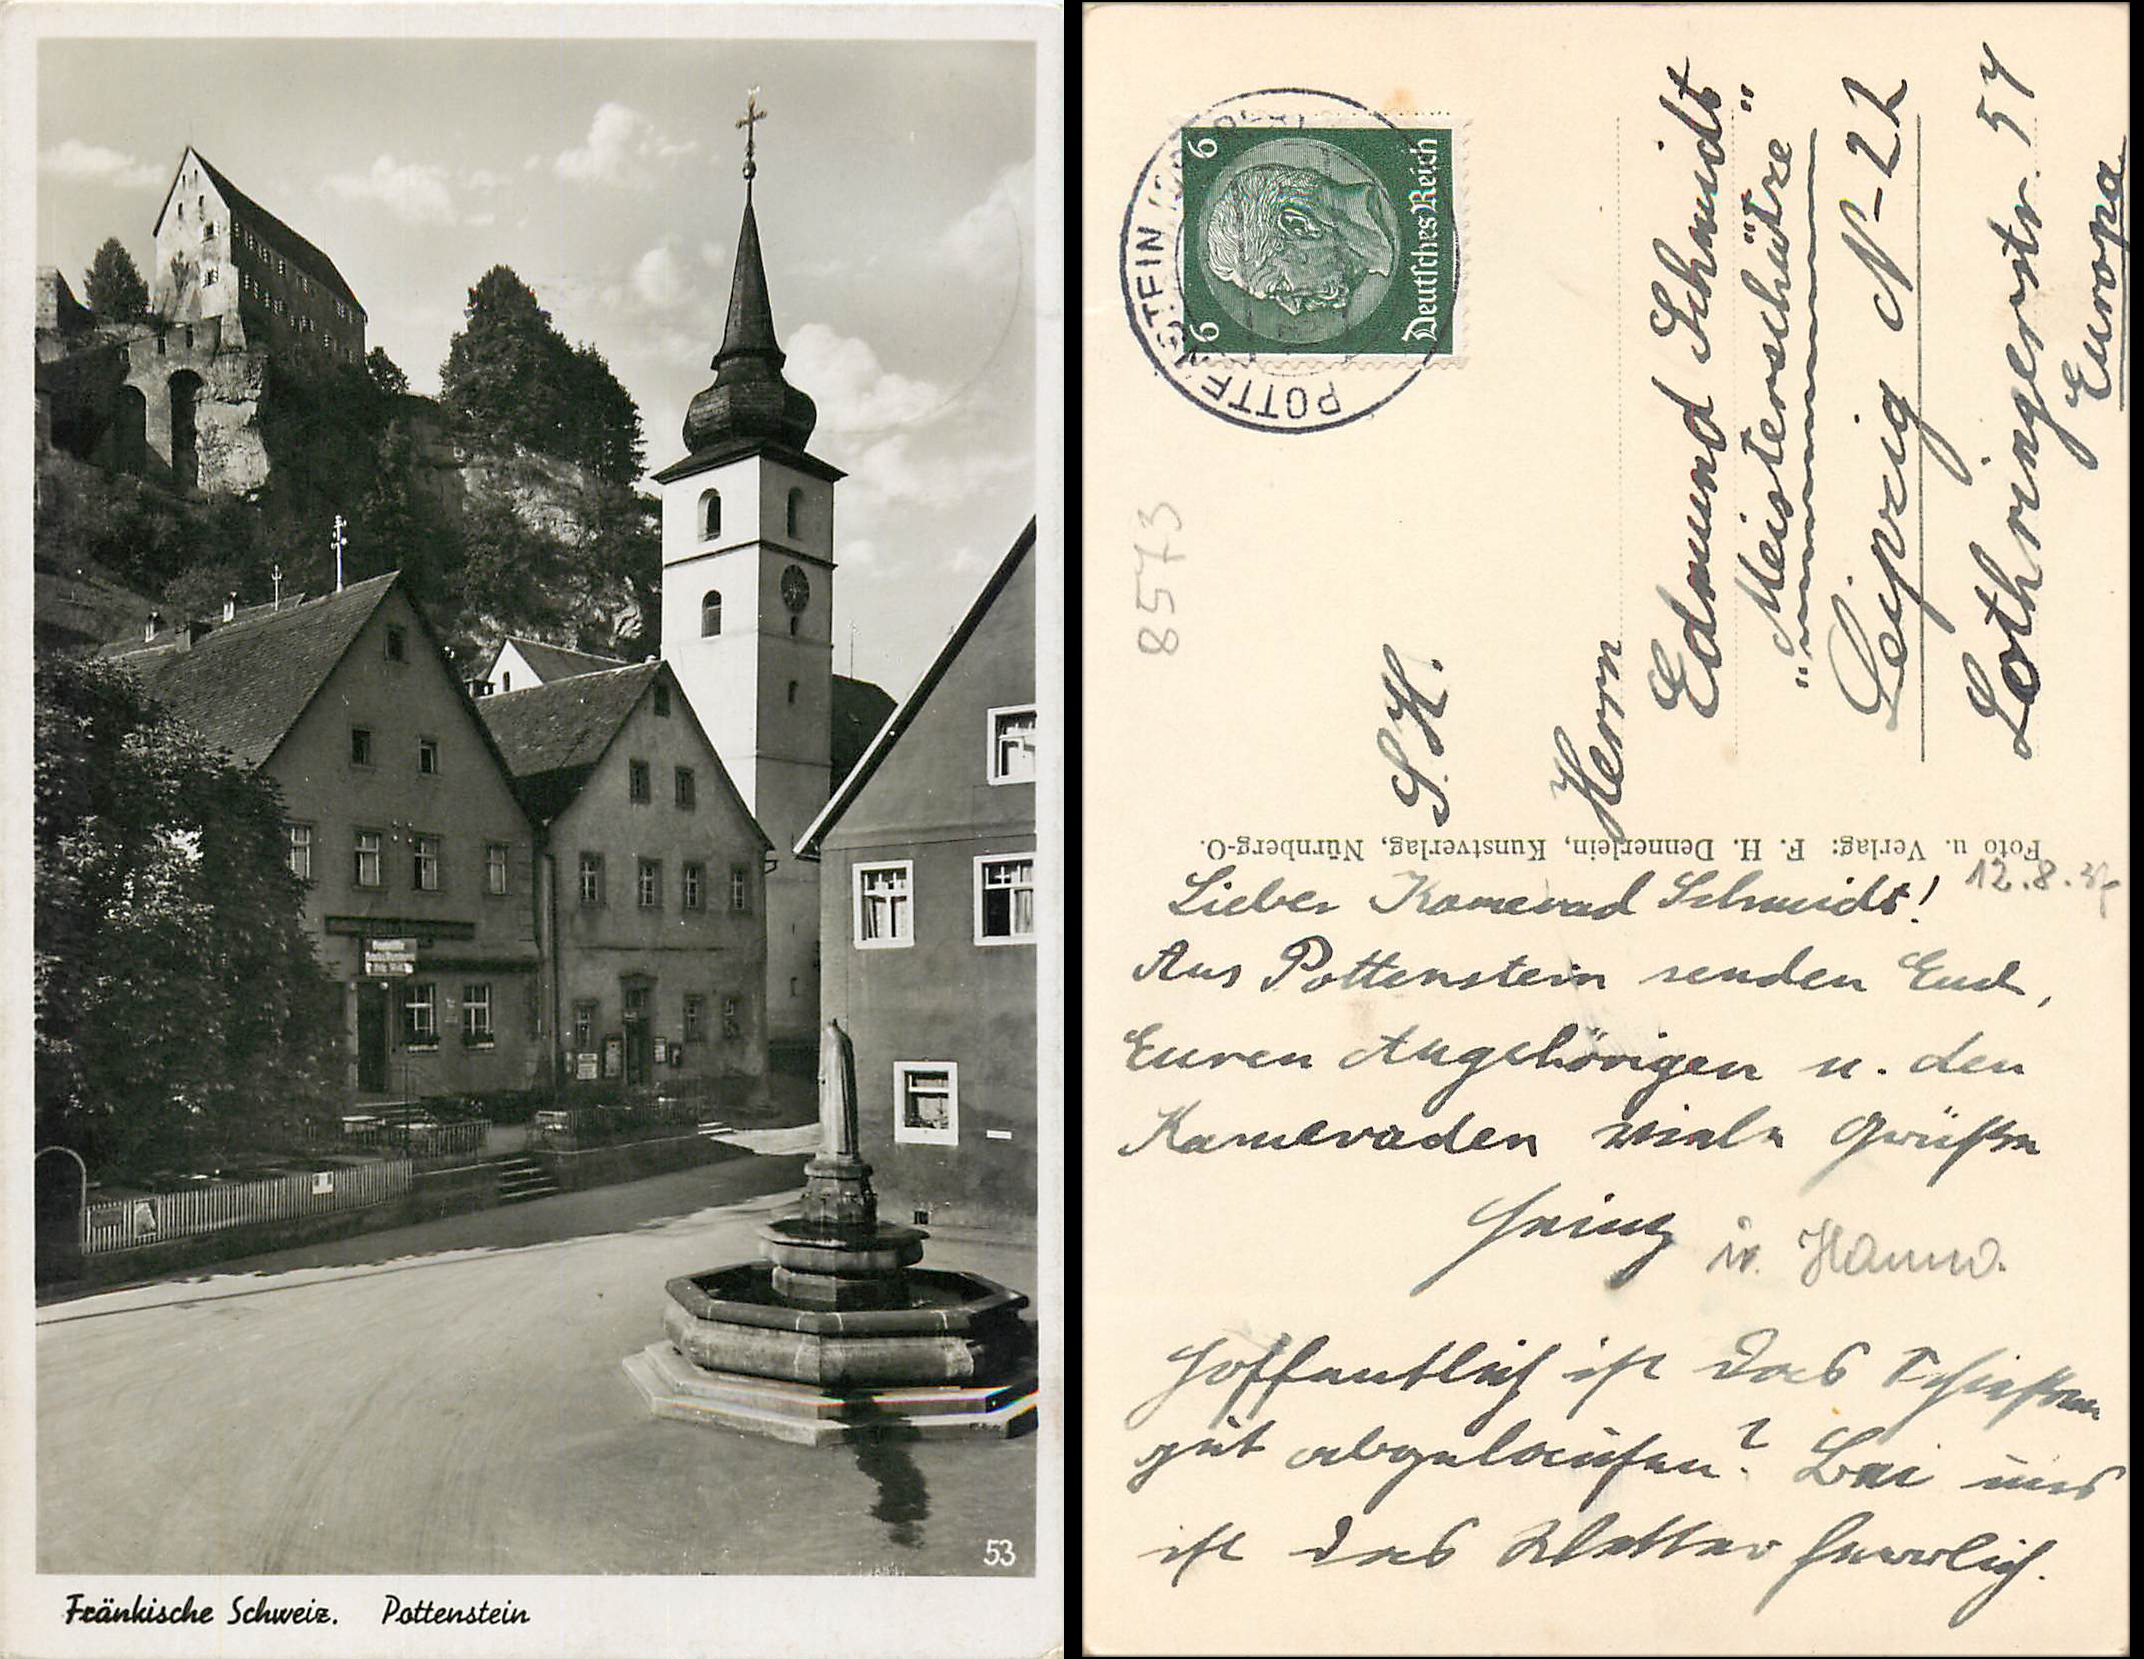 53
Fränkische Schweiz. Pottenstein
POTTENSTEIN
6 6
Deutsches Reich
8573
S. H.
Herrn
Edmund Schmidt
"Meisterschütze"
Leipzig N-22
Lothringerstr. 54
Europa
Foto u. Verlag: F. H. Dennerlein, Kunstverlag, Nürnberg-O.
12.8.
Lieber Kamerad Schmidt!
Aus Pottenstein senden Euch,
Euren Angehörigen u. den
Kameraden viele Grüße
Heinz u. Hanno.
Hoffentlich ist das Schießen
gut abgelaufen? Bei uns
ist das Wetter herrlich.